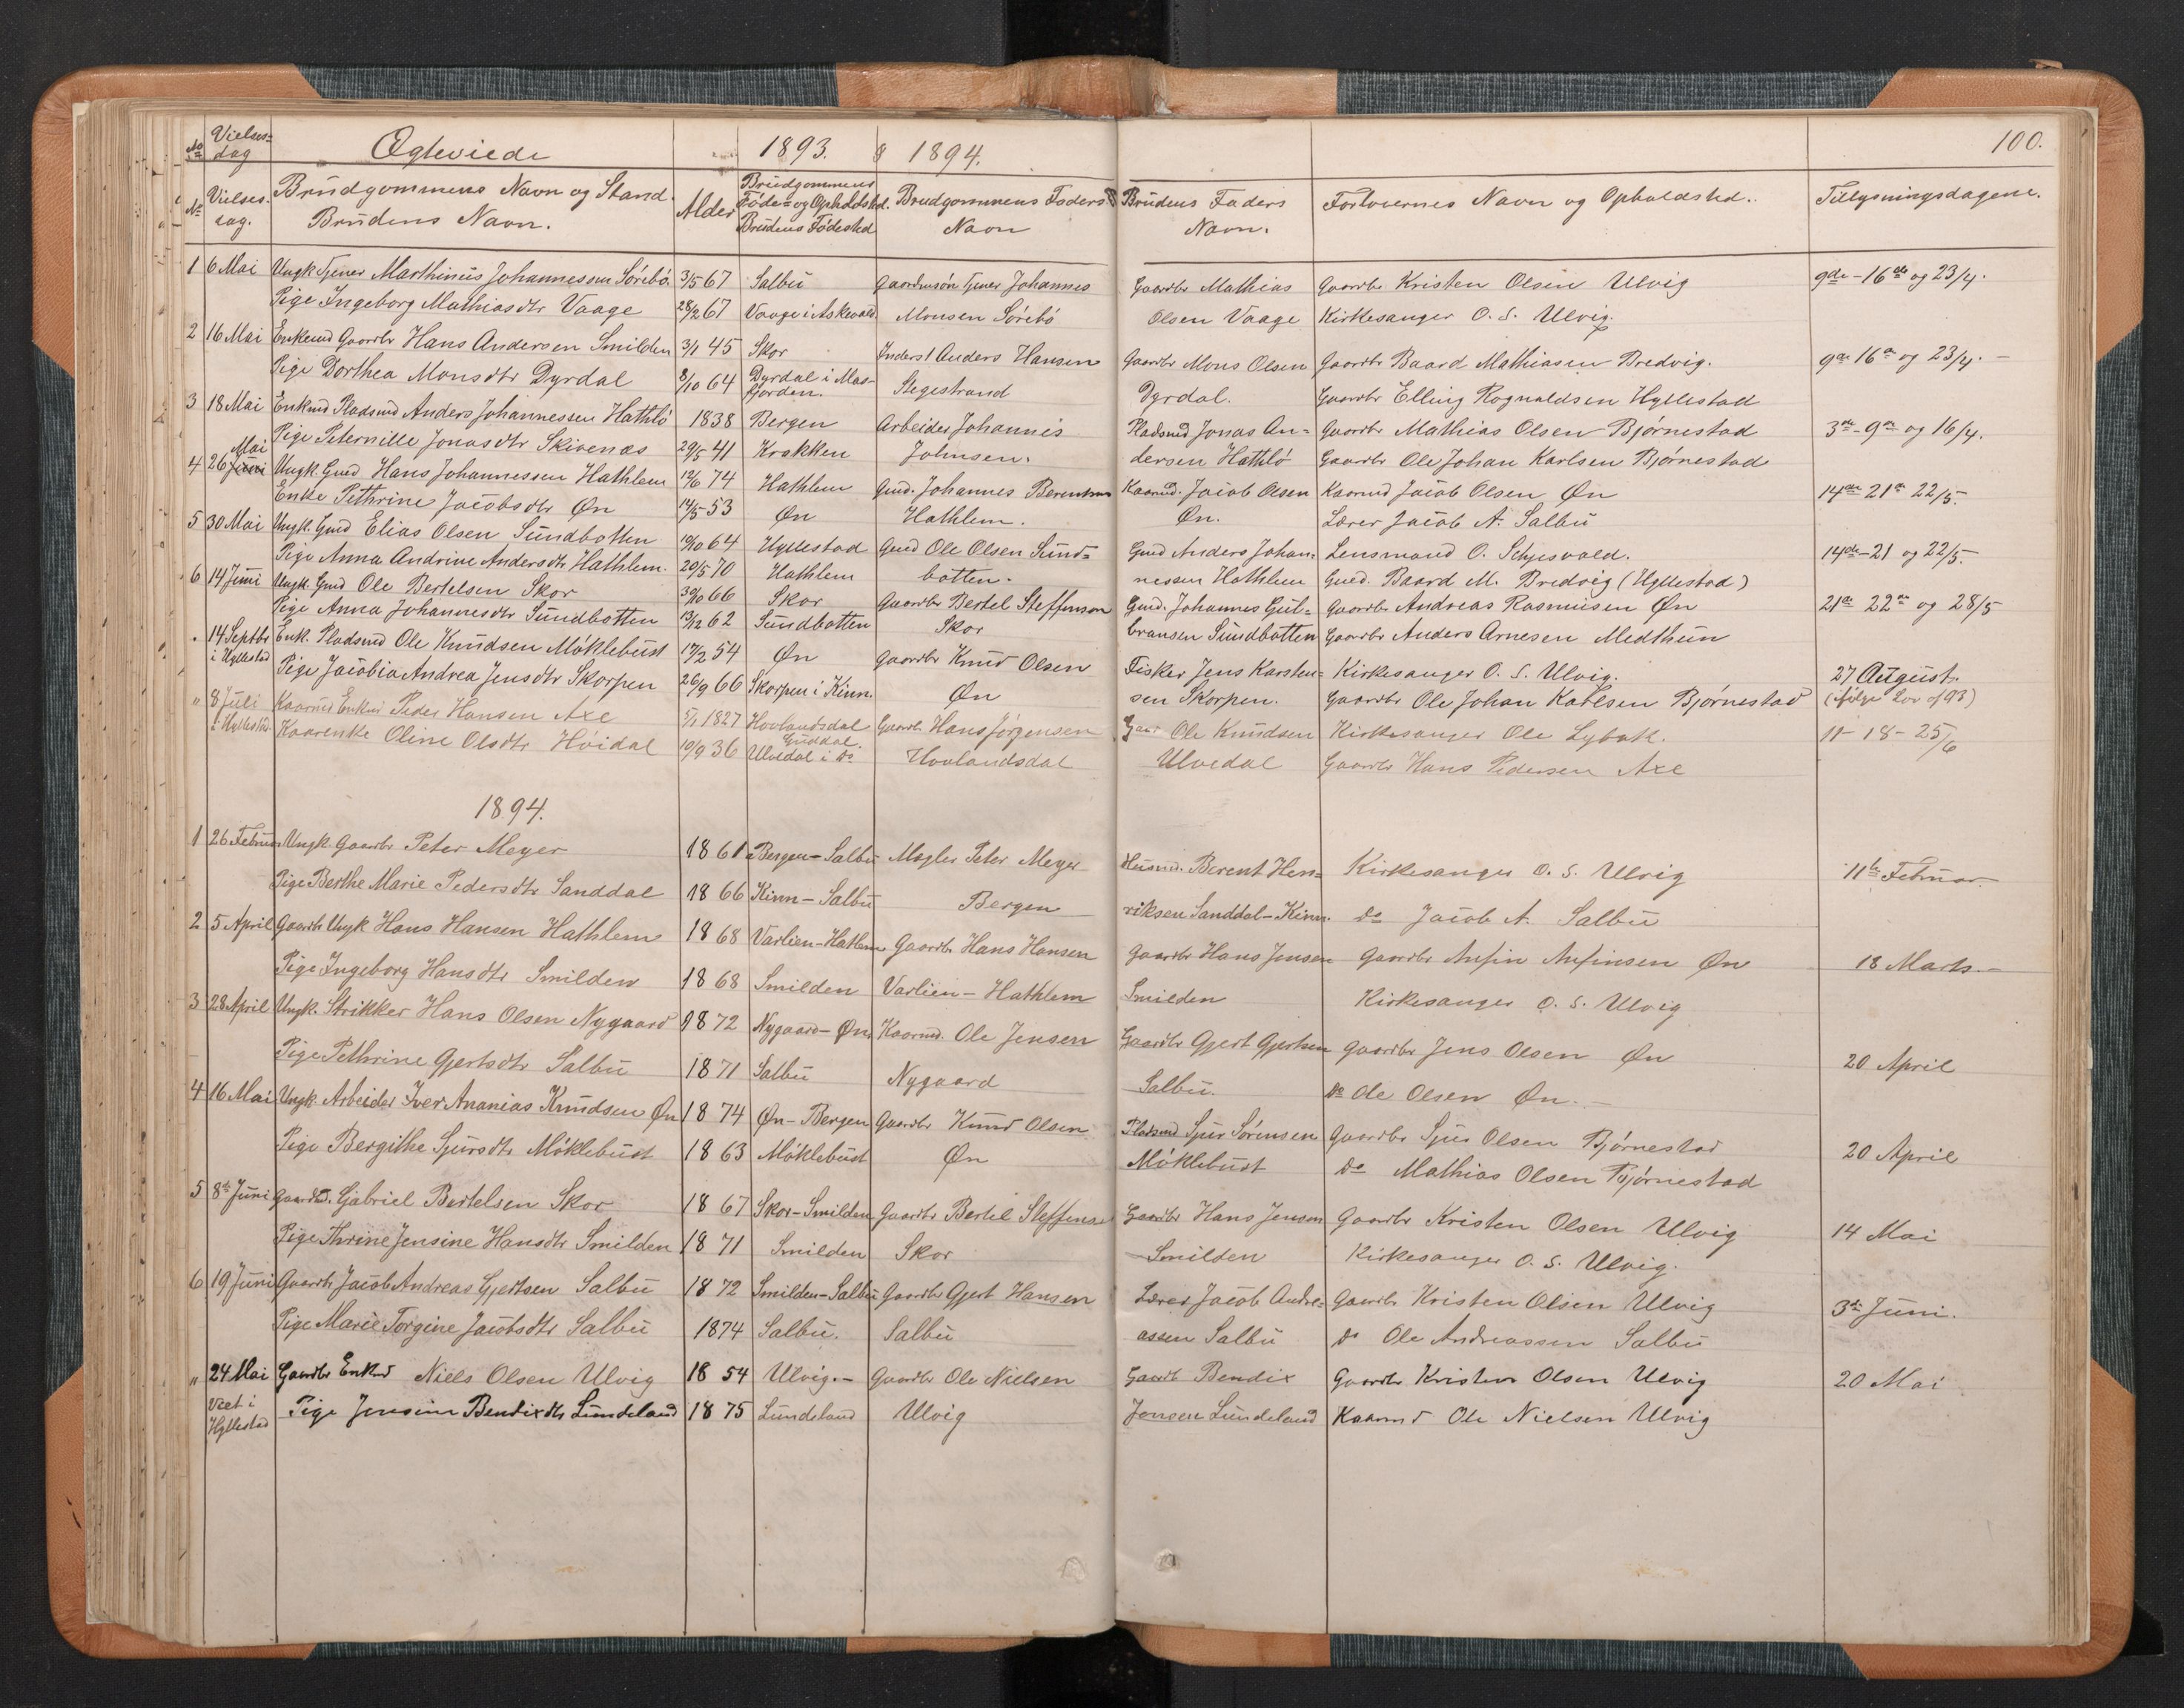 No Vielses=dag Ægteviede 1893. & 1894. 100.
No Vielses dag. Brudgommens Navn og Stand. Brudens Navn. Alder Brudgommens Føde= og Opholdsted. Brudens Fødested Brudgommens Faders Navn Brudens Faders Navn. Forlovernes Navn og Opholdsted. Tillysningsdagene.
1 6 Mai Ungk Tjener Marthinus Johannessen Sørebø 3/5 67 Salbu Gaardmsøn Tjener Johannes Gaardbr Mathias Gaardbr Kristen Olsen Ulvig 9de - 16de og 23/4.
Pige Ingeborg Mathiasdtr Vaage 28/2 67 Vaage i Askevold Monsen Sørebø Olsen Vaage Kirkesanger O. S. Ulvig.
2 16 Mai Enkemd Gaardbr Hans Andersen Smilden 3/1 45 Skor Inderst Anders Hansen Gaardbr Mons Olsen Gaardbr Baard Mathiasen Bredvig. 9de 16de og 23/4. -
Pige Dorthea Monsdtr Dyrdal 8/10 64 Dyrdal i Mas- fjorden. Stegestrand Dyrdal. Gaardbr Elling Rognaldsen Hyllestad
3 18 Mai Enkmd Pladsmd Anders Johannessen Hathlø 1838 Bergen Arbeider Johannes Pladsmd Jonas An= Gaardbr Mathias Olsen Bjørnestad 3de - 9de og 16/4.
Pige Peternille Jonasdtr Skivenæs 29/5 41 Krakken Johnsen. dersen Hathlø Gaardbr Ole Johan Karlsen Bjørnestad
4 26 Juni Mai Ungk. Gmd Hans Johannessen Hathlem 12/6 74 Hathlem Gmd. Johannes Berentsen Kaarmd. Jacob Olsen Kaarmd Jacob Olsen Øn 14de 21de 22/5.
Enke Pethrine Jacobsdtr Øn 14/5 53 Øn Hathlem. Øn. Lærer Jacob A. Salbu
5 30 Mai Ungk. Gmd Elias Olsen Sundbotten 19/10 64 Hyllestad Gmd Ole Olsen Sund= Gmd Anders Johan= Lensmand O. Schjesvold. 14de - 21 og 22/5.
Pige Anna Andrine Andersdtr Hathlem. 20/5 70 Hathlem botten. nessen Hathlem Gmd. Baard M. Bredvig (Hyllestad)
6 14 Juni Ungk. Gmd Ole Bertelsen Skor 30/10 66 Skor Gaardbr Bertel Steffensen Gmd. Johannes Gul= Gaardbr Andreas Rasmusen Øn 21de 22de og 28/5
Pige Anna Johannesdtr Sundbotten 13/12 62 Sundbotten Skor bransen Sundbotten Gaardbr Anders Arnesen Medthun
. 14 Septbr i Hyllestad Enk. Pladsmd Ole Knudsen Møklebust 17/2 54 Øn Gaardbr Knud Olsen Fisker Jens Karsten= Kirkesanger O. S. Ulvig. 27 August.
Pige Jacobia Andrea Jensdtr Skorpen 26/9 66 Skorpen i Kinn. Øn sen Skorpen. Gaardbr Ole Johan Karlsen Bjørnestad (ifølge Lov af 93)
" 8 Juli i Hyllestad. Kaarmd Enkmd Peder Hansen Axe 5/1 1827 Hovlandsdal Guddal. Gaardb. Hans Jørgensen Gaar Ole Knudsen Kirkesanger Ole Lybæk. 11 - 18 - 25/6
Kaarenke Oline Olsdtr Høidal 10/9 36 Ulvedal i do Hovlandsdal Ulvedal Gaardbr Hans Pedersen Axe
1894.
1 26 Februar Ungk Gaardbr Peter Meyer 1861 Bergen - Salbu Mægler Peter Meyer Husmd. Berent Hen= Kirkesanger O. S. Ulvig 11te Februar.
Pige Berthe Marie Pedersdtr Sanddal 1866 Kinn - Salbu Bergen riksen Sanddal - Kinn. do Jacob A. Salbu
2 5 April Gaardb Ungk Hans Hansen Hathlem 1868 Varlien - Hathlem Gaardbr Hans Hansen Gaardbr Hans Jensen Gaardbr Anfin Anfinsen Øn 18 Marts. -
Pige Ingeborg Hansdtr Smilden 1868 Smilden Varlien - Hathlem Smilden Kirkesanger O. S. Ulvig
3 28 April Ungk. Strikker Hans Olsen Nygaard 1872 Nygaard - Øn Kaarmd. Ole Jensen Gaardbr Gjert Gjertsen Gaardbr Jens Olsen Øn 20 April
Pige Pethrine Gjertsdtr Salbu 1871 Salbu Nygaard Salbu. do Ole Olsen Øn. -
4 16 Mai Ungk. Arbeider Iver Ananias Knudsen Øn 1874 Øn - Bergen Gaardbr Knud Olsen Pladsmd Sjur Sørensen Gaardbr Sjur Olsen Bjørnestad 20 April
Pige Bergithe Sjursdtr Møklebust 1863 Møklebust Øn Møklebust do Mathias Olsen Bjørnestad
5 8de Juni Gaardbd. Gabriel Bertelsen Skor 1867 Skor - Smilden Gaardbr Bertel Steffensen Gaardbr Hans Jensen Gaardbr Kristen Olsen Ulvig 14 Mai
Pige Thrine Jensine Hansdtr Smilden 1871 Smilden Skor Smilden Kirkesanger O. S. Ulvig.
6 19 Juni Gaardb Jacob Andreas Gjertsen Salbu 1872 Smilden - Salbu Gaardbr Gjert Hansen Lærer Jacob Andre= Gaardbr Kristen Olsen Ulvig 3de Juni.
Pige Marie Torgine Jacobsdtr Salbu 1874 Salbu. Salbu assen Salbu do Ole Andreassen Salbu
" 24 Mai Gaardbr Enkmd Niels Olsen Ulvig 1854 Ulvig. - Gaardbr Ole Nielsen Gaardb Bendix Gaardbr Kristen Olsen Ulvig 20 Mai
Viet i Hyllestad Pige Jensine Bendixdtr Lundeland 1875 Lundeland Ulvig Jensen Lundeland Kaarmd Ole Nielsen Ulvig